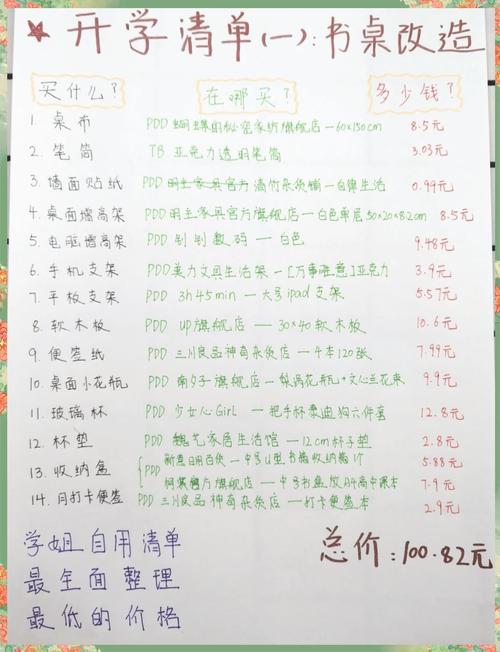 ★ 开学清单(一):书桌改造
买什么? 在哪买? 多少钱?
1. 桌布 PDD 蝴蝶的秘密家纺旗舰店—60×130cm 8.5元
2. 笔筒 TB 亚克力透明笔筒 3.03元
3. 墙面贴纸 PDD 明主家具官方 清竹杂货铺—白馀生活 0.99元
4. 桌面增高架 PDD 明主家具官方旗舰店—白色单层50×20×82cm 8.5元
5. 电脑增高架 PDD 别别数码—白色 9.48元
6. 手机支架 PDD 美力文具生活架—[万事随意]亚克力 3.9元
7. 平板支架 PDD 3h45min—大号ipad支架 5.57元
8. 软木板 PDD up旗舰店—30×40软木板 10.6元
9. 便签纸 PDD 三川良品神奇杂货店—4本120张 7.99元
10. 桌面小花瓶 PDD 南夕子旗舰店—梨涡花瓶+文心兰花束 9.9元
11. 玻璃杯 PDD 少女心Girl—把手杯柔迪狗六件套 12.8元
12. 杯垫 PDD 魏艺家居生活馆—12cm杯子垫 2.8元
13. 收纳盒 PDD 新意日用百货—中号U型书籍收纳箱1个 5.88元
PDD 旗舰店—中号书盒放A4高中课本 7.9元
14. 月打卡便签 PDD 三川良品神奇杂货店—打卡便签本 2.9元
学姐自用清单
最全面整理
最低的价格
总价:100.82元